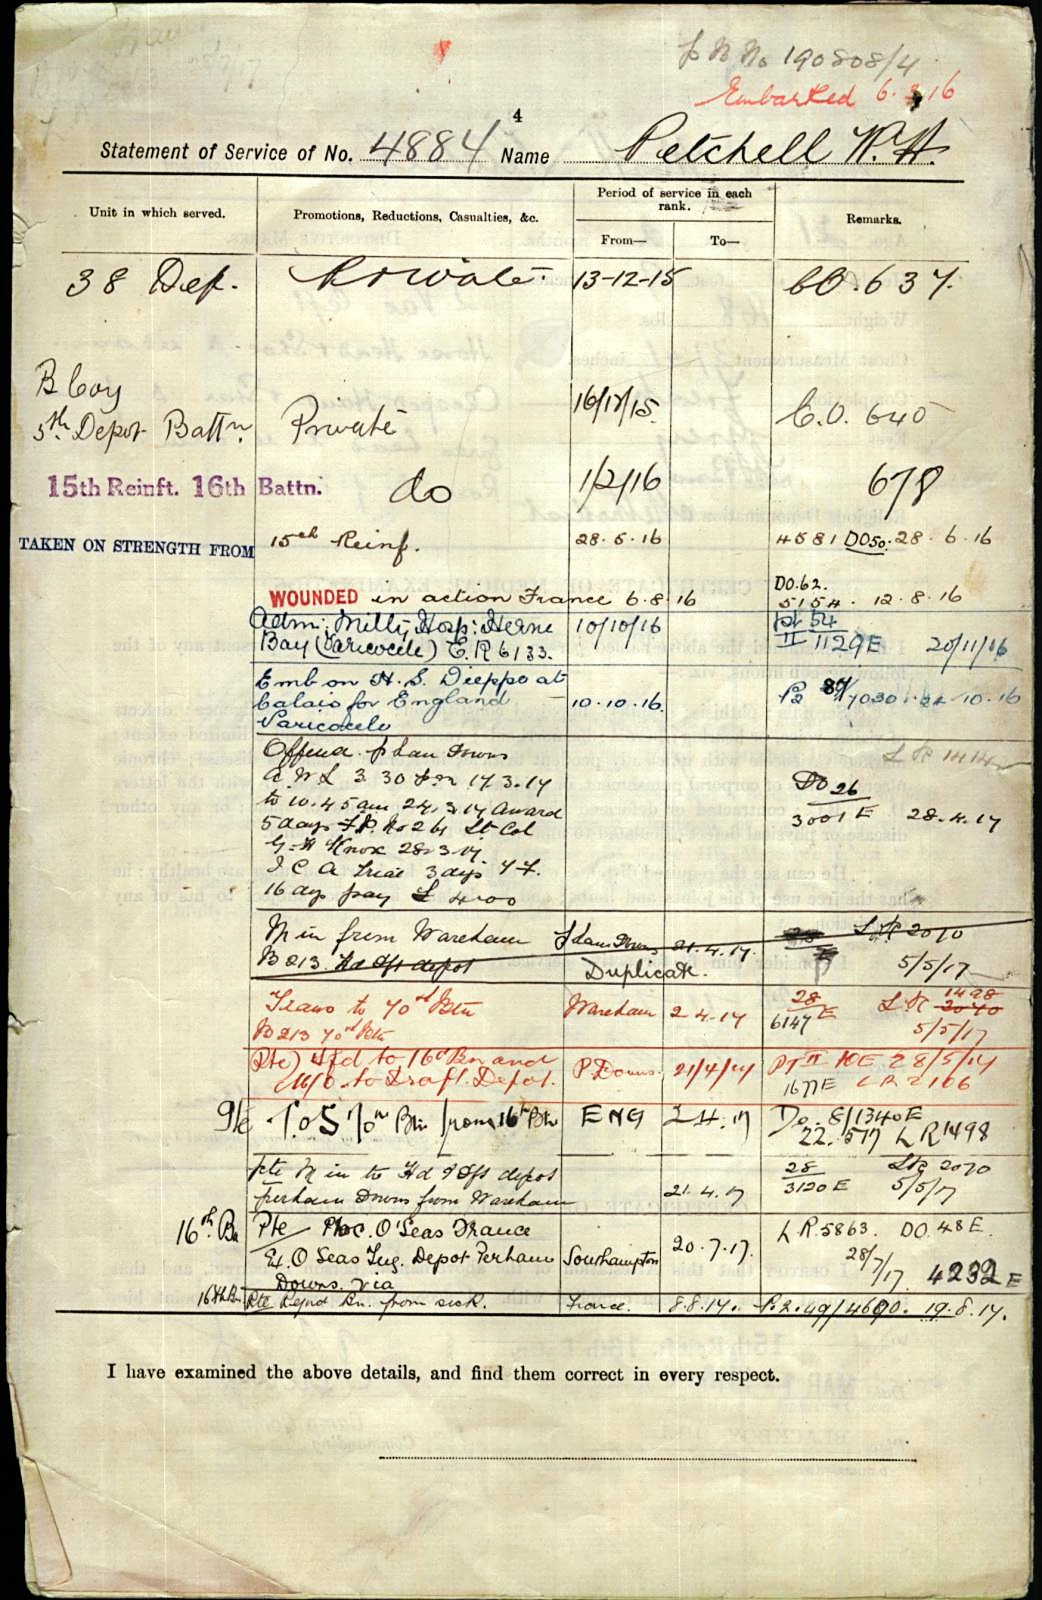 190808/4
Embarked 6. 16
4
Statement of Service of No. 4884 Name Petchell W. H.
Unit in which served.
Promotions, Reductions, Casualties, &c.
Period of service in each rank.
From—
To—
Remarks.
38 Dep. Private 13-12-15 CO. 637.
B Coy
5th Depot Battn. Private 16/12/15 C.O. 645
15th Reinft. 16th Battn. do 1/2/16 678
TAKEN ON STRENGTH FROM 15th Reinf. 28.6.16 4581 DO50. 28.6.16
WOUNDED in action France 6.8.16 DO.62. 5154. 12.8.16
Adm: Milty Hosp: Herne 10/10/16
Bay (Varicocele) E.R 6133. II 1129E 20/11/16
Emb on H.S. Dieppe at
Calais for England 10.10.16. 10.16
Varicocele
Offence. Downs
A.W.L 3 30 17.3.17 DO 26
to 10.45am 24.3.17 Award 3001 E 28.4.17
5 days F.P. No 2 by Lt Col
G.H Knox 28.3.17.
3 days
16 days pay £4-0-0
M in from Wareham 21.4.17. LR 2070
B 213 Hd Qfs depot Duplicate. 5/5/17
Trans to 70th Btn Wareham 2 4.17 28 6147 E LR 1498 2070
B 213 70th Btn 5/5/17
Pte) tfd to 16th Bn and P. Downs. 21/4/17 PT II 28/5/17
M/O. to Draft. Depot. 1677E LR 2106
Pte T.O.S 70th Btn from 16th Btn ENG 2.4.17 Do. 8/1340E
22. 5 17 LR 1498
Pte M in to Hd Qfs depot 28 LR 2070
Perham Downs from Wareham 21.4.17 3120 E 5/5/17
16th Bn Pte Proc. O'Seas France 20.7.17. LR.5863. DO.48E.
Ex. O Seas Tng. Depot Perham Southampton 28/7/17 4232 E
Downs. via
16th Bn Pte Rejnd Bn. from sick. France. 8.8.17. P.2.49/4690. 19.8.17.
I have examined the above details, and find them correct in every respect.